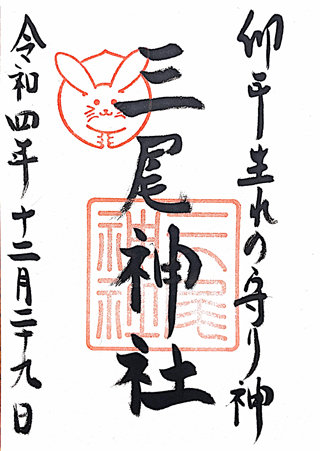 卯年生れの守り神
三尾神社
三尾神社
令和四年十二月二十九日